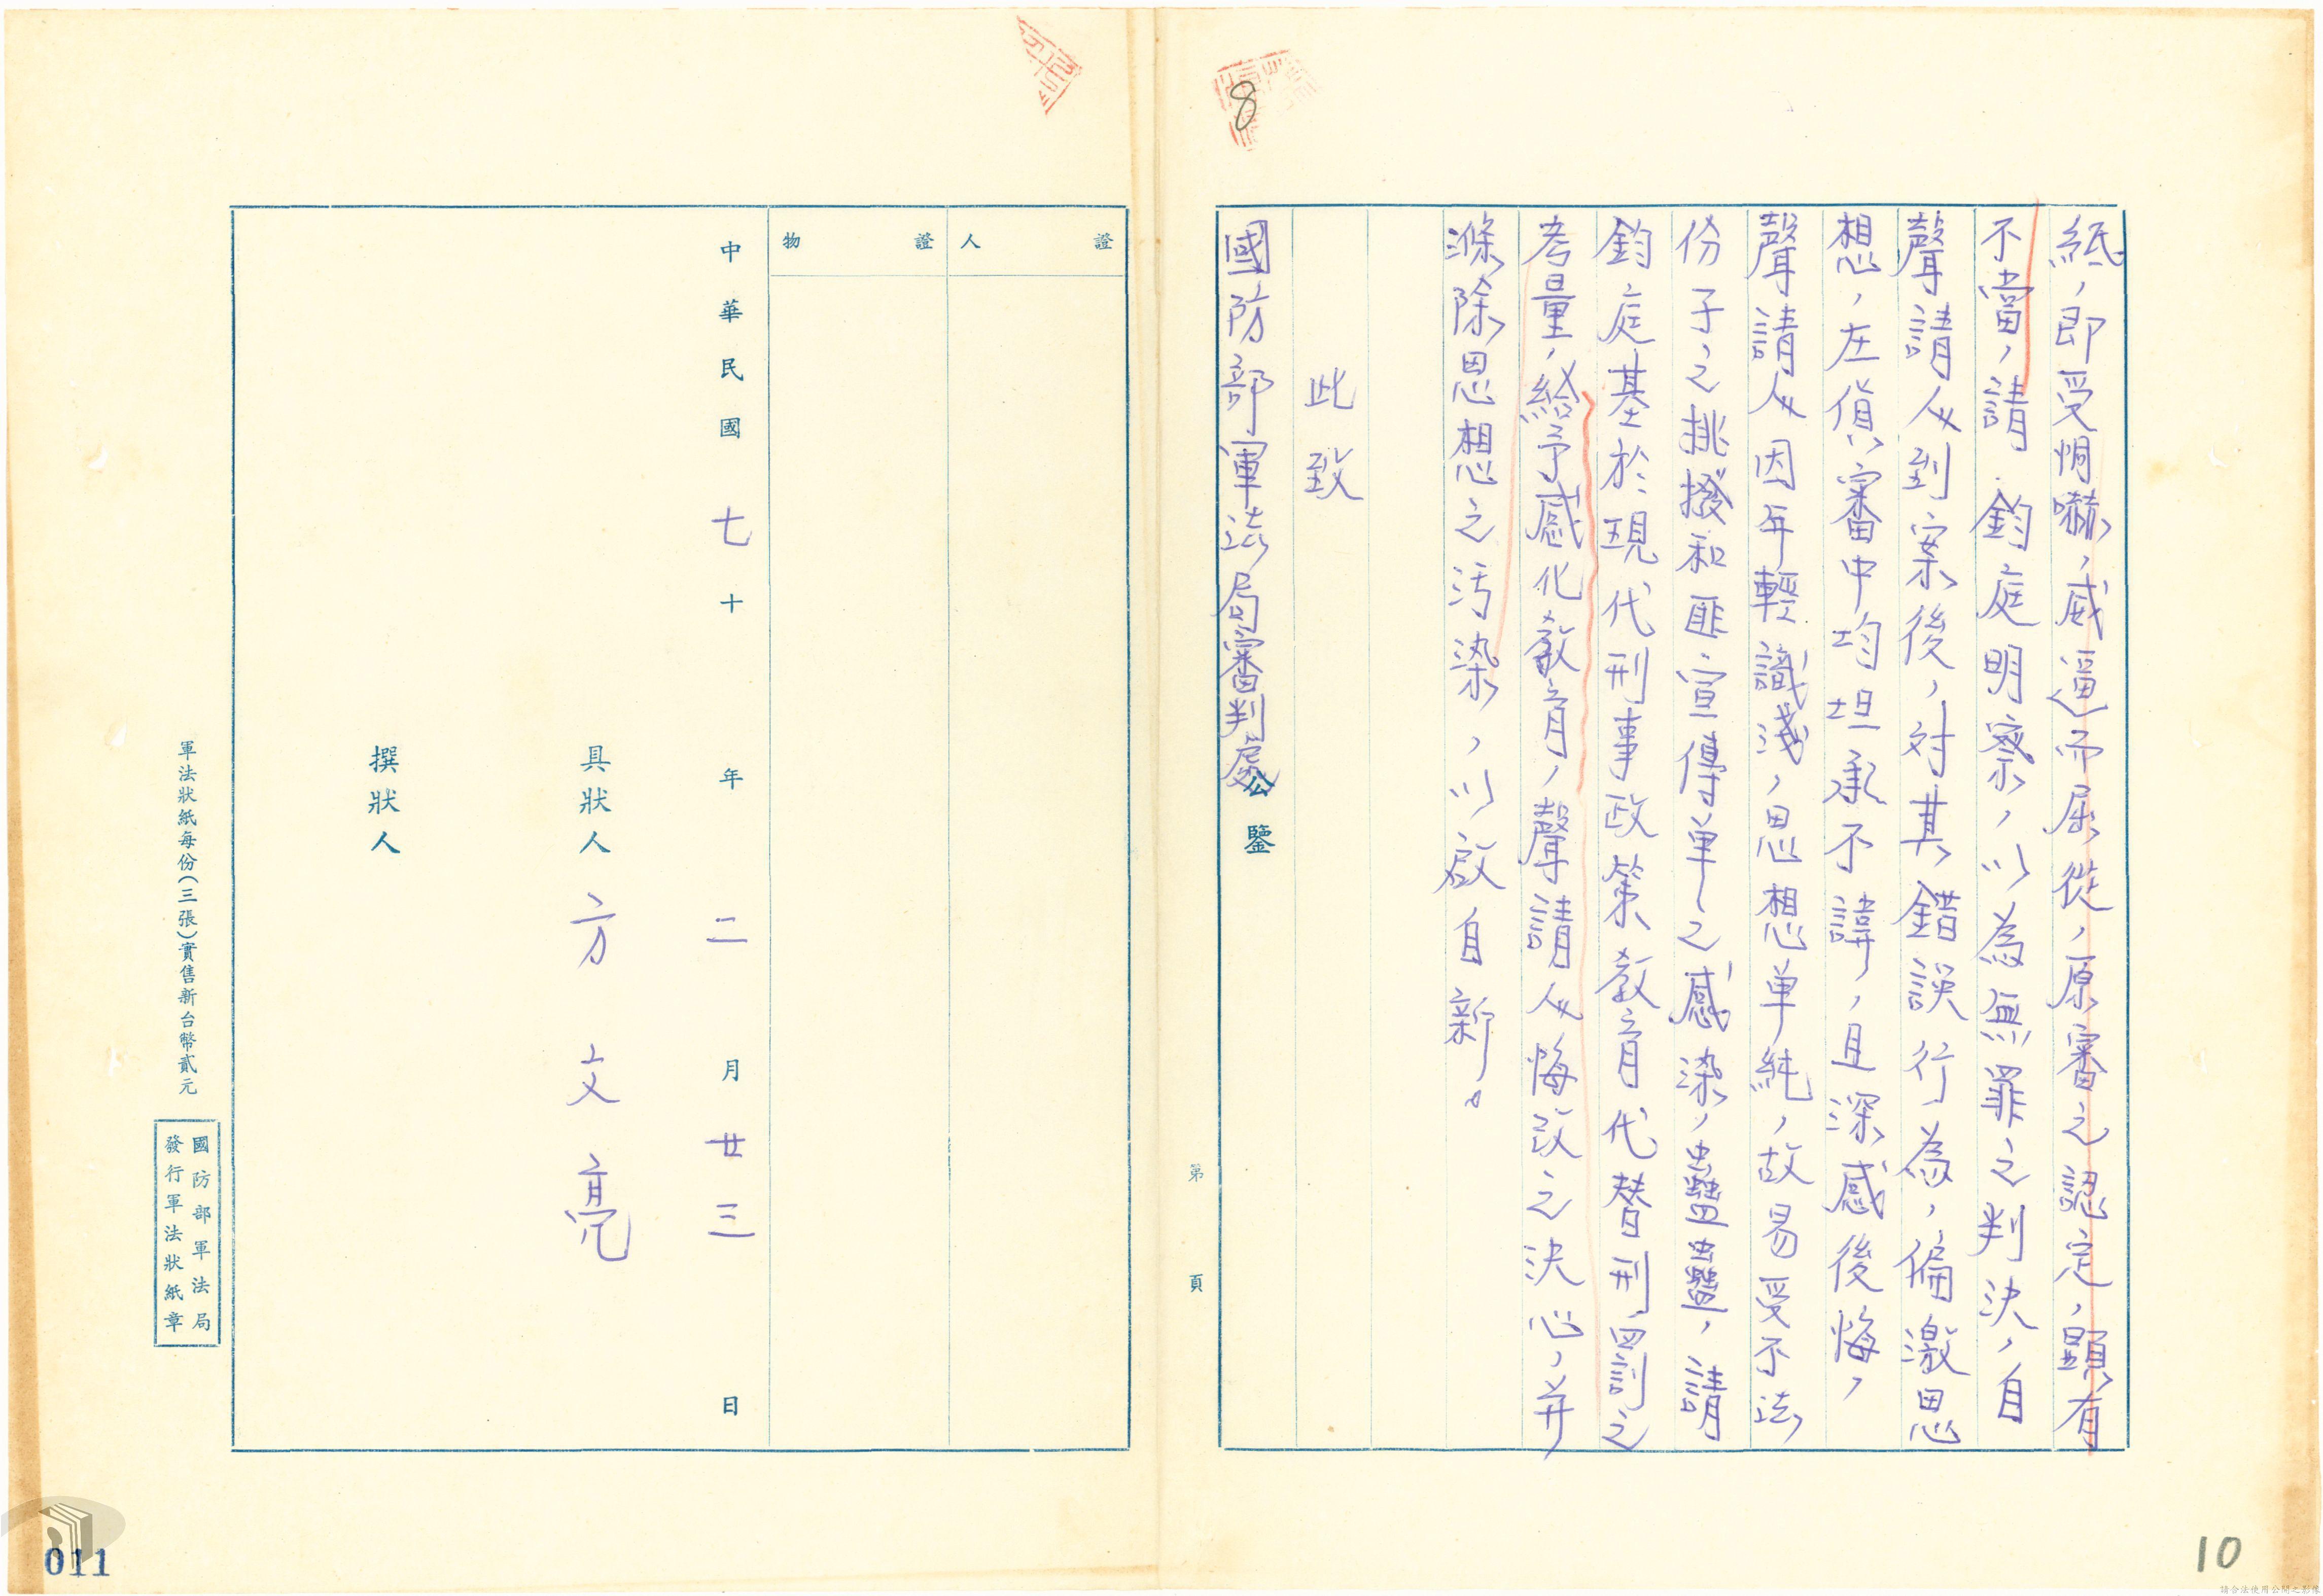 紙，即受恫嚇，威逼而屈從，原審之認定，顯有
不當，請　鈞庭明察，以為無罪之判決，自
聲請人到案後，对其錯誤行為，偏激思
想，在偵審中均坦承不諱，且深感後悔，
聲請人因年輕識淺，思想单純，故易受不法
份子之挑撥和匪宣傳单之感染，蠱蠱，請
鈞庭基於現代刑事政策教育代替刑罰之
考量，給予感化教育，聲請人悔改之決心，并
滌除思想之污染，以啟自新。
此致
國防部軍法局審判處公鑒
第　頁
8
證人
證物
中華民國七十年二月廿三日
具狀人　方文亮
撰狀人
軍法狀紙每份（三張）實售新台幣貳元
國防部軍法局
發行軍法狀紙章
011
10
請合法使用公開之影像